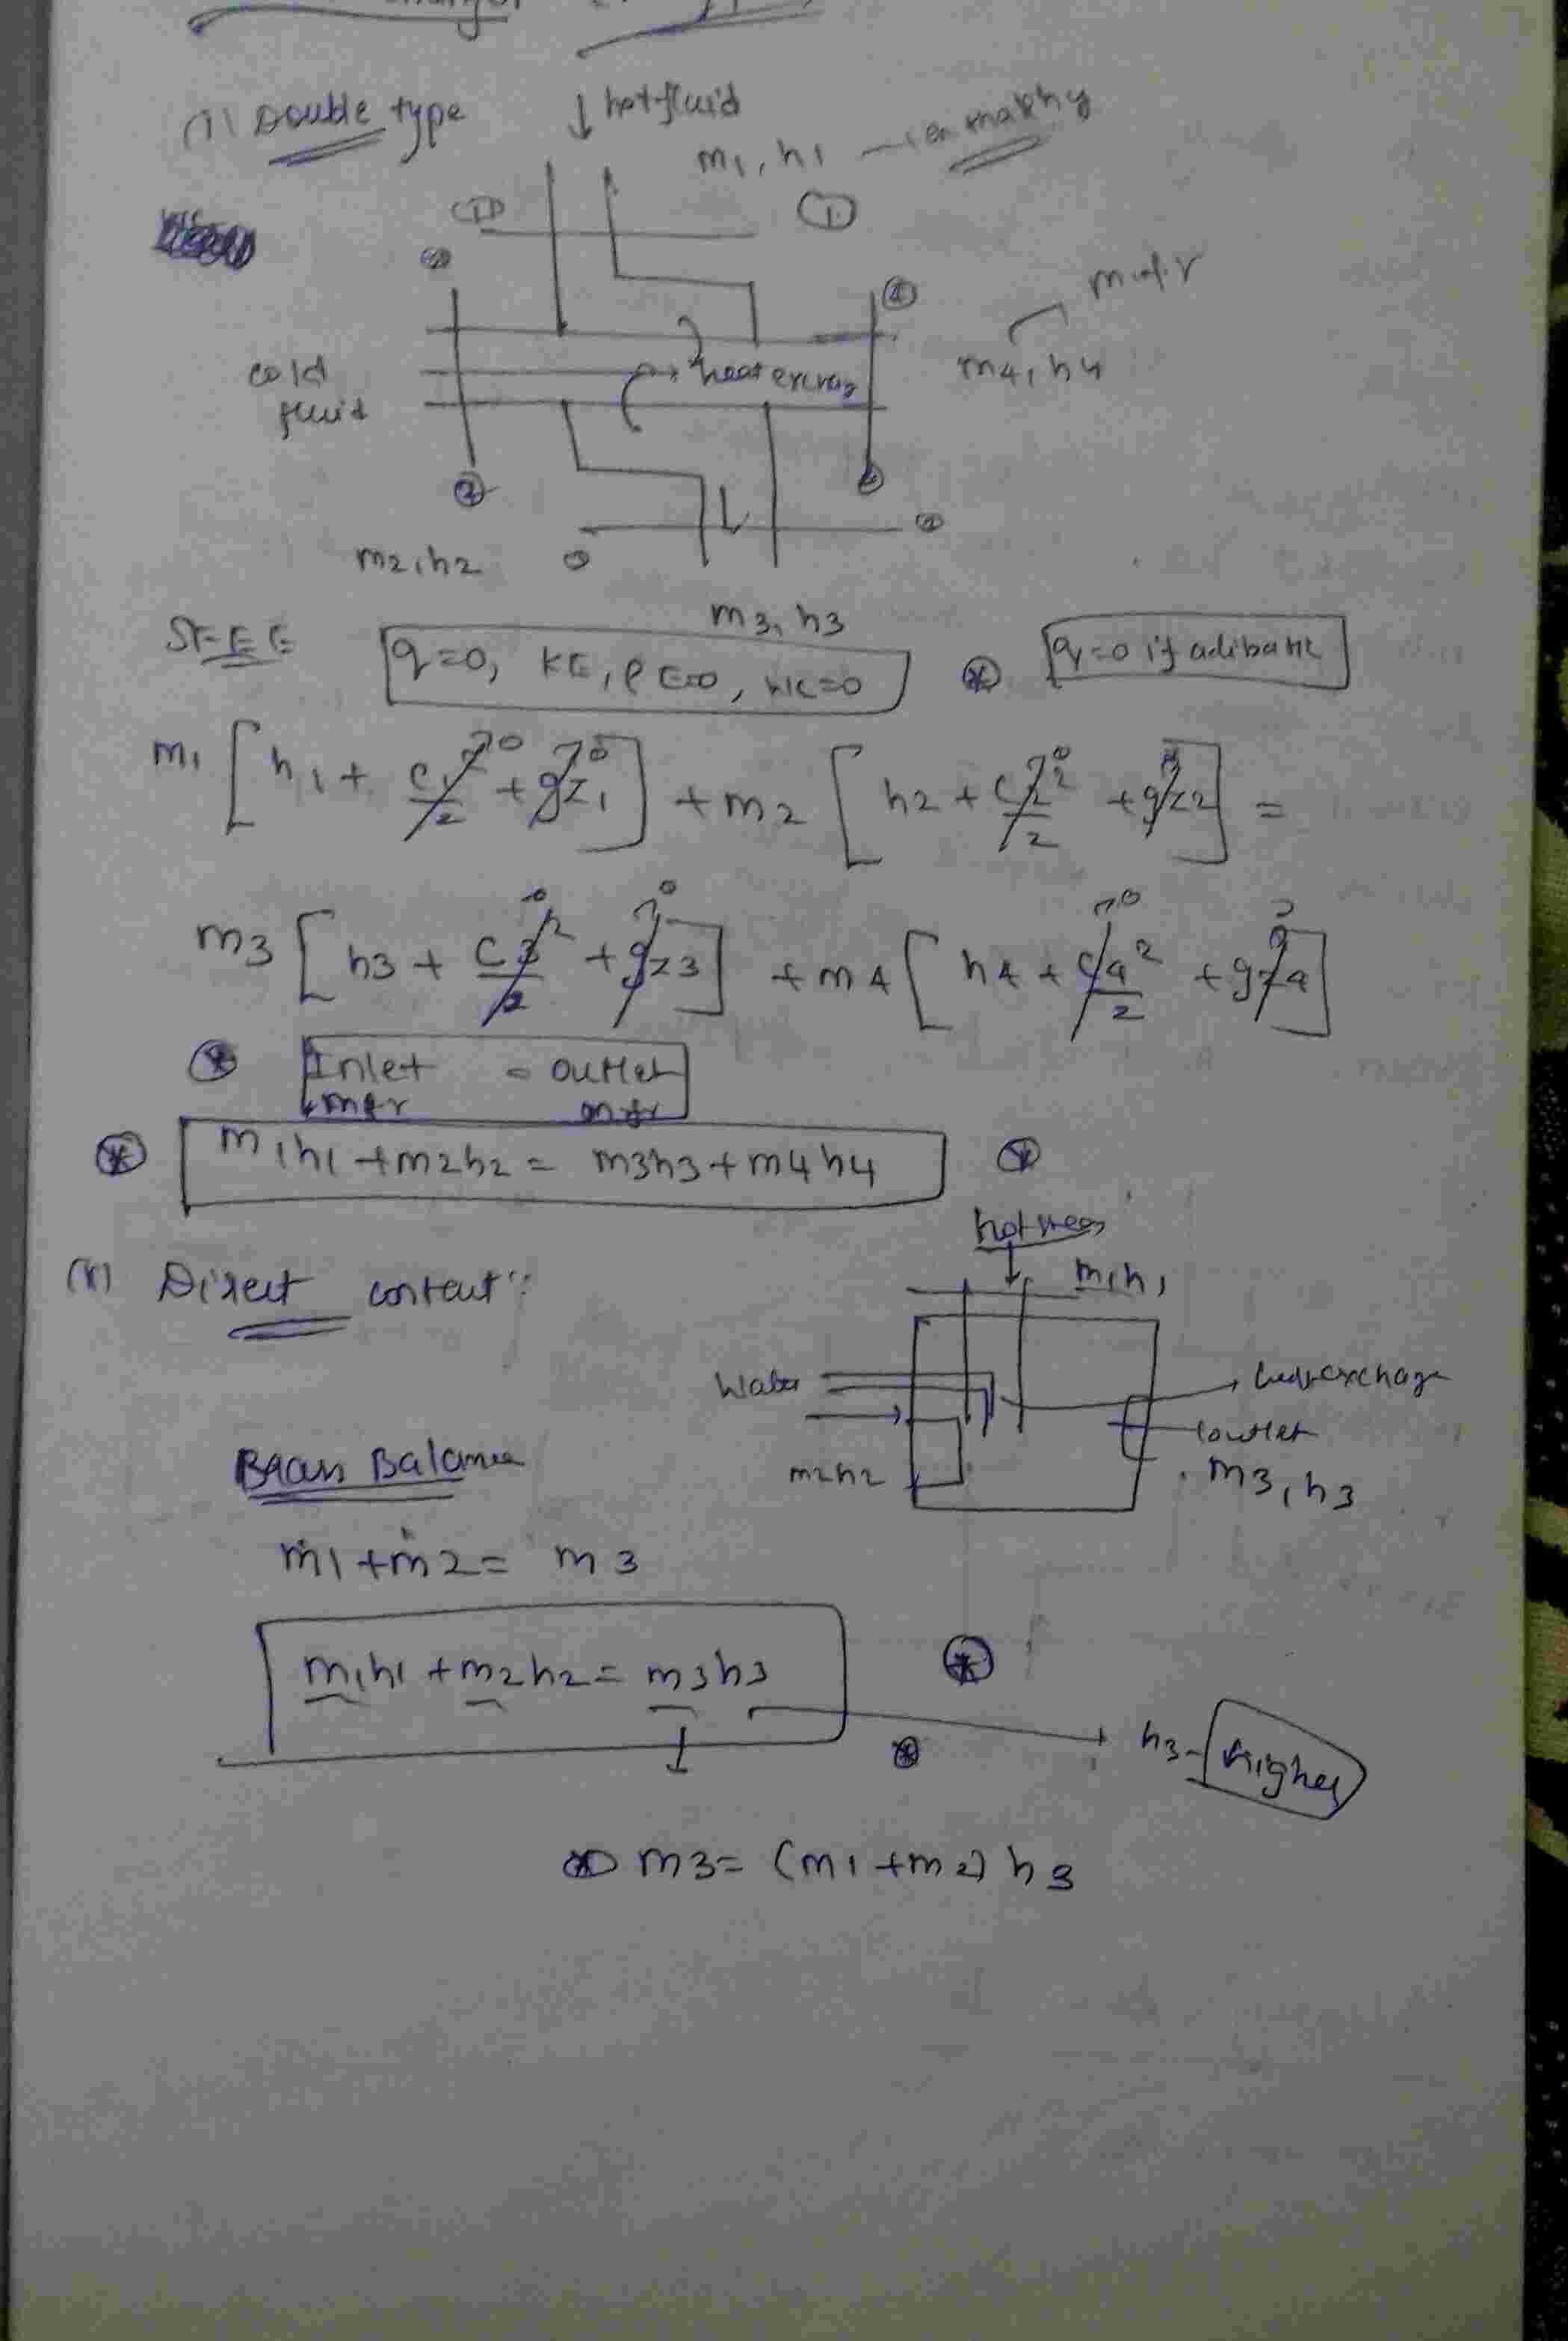 (1) Double type
↓ hot fluid
m1, h1
①
①
②
④
m·f·r
cold fluid
m4, h4
②
④
m2, h2
m3, h3
SFEE
q=0, KE, PE=0, wk=0
q=0 if adibatic
m1 [h1 + c1²/2 + gz1] + m2 [h2 + c2²/2 + gz2] =
m3 [h3 + c3²/2 + gz3] + m4 [h4 + c4²/2 + gz4]
Inlet = outlet
mfr mfr
m1h1 + m2h2 = m3h3 + m4h4
Direct contact:
m1h1
Water
heat exchage
outlet
m2h2
m3, h3
Balance
ṁ1 + ṁ2 = m3
m1h1 + m2h2 = m3h3
h3 - higher
m3 = (m1 + m2) h3